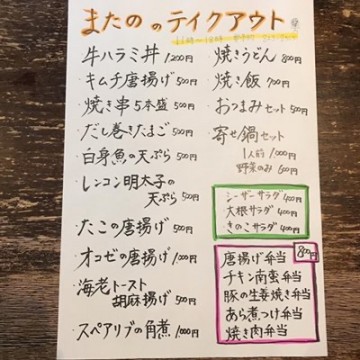 またの のテイクアウト
牛ハラミ丼 1,200円
キムチ唐揚げ 500円
焼き串5本盛 500円
だし巻きたまご 500円
白身魚の天ぷら 500円
レンコン明太子の
天ぷら 500円
たこの唐揚げ 500円
オコゼの唐揚げ 1,000円
海老トースト
胡麻揚げ 500円
スペアリブの角煮 1,000円
焼きうどん 800円
焼き飯 700円
おつまみセット 500円
寄せ鍋セット
1人前 1,000円
野菜のみ 500円
シーザーサラダ 400円
大根サラダ 400円
きのこサラダ 400円
800円
唐揚げ弁当
チキン南蛮弁当
豚の生姜焼き弁当
あら煮つけ弁当
焼き肉弁当